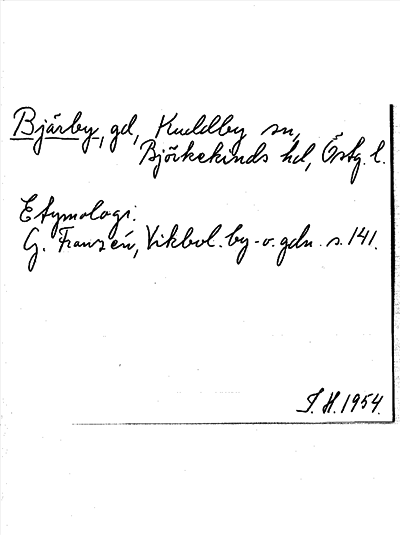 Bjärby, gd, Kuddby sn,
Björkekinds hd, Östg. l.
Etymologi:
G. Franzén, Vikbol. by- o. gdn. s. 141.
S. H. 1954.